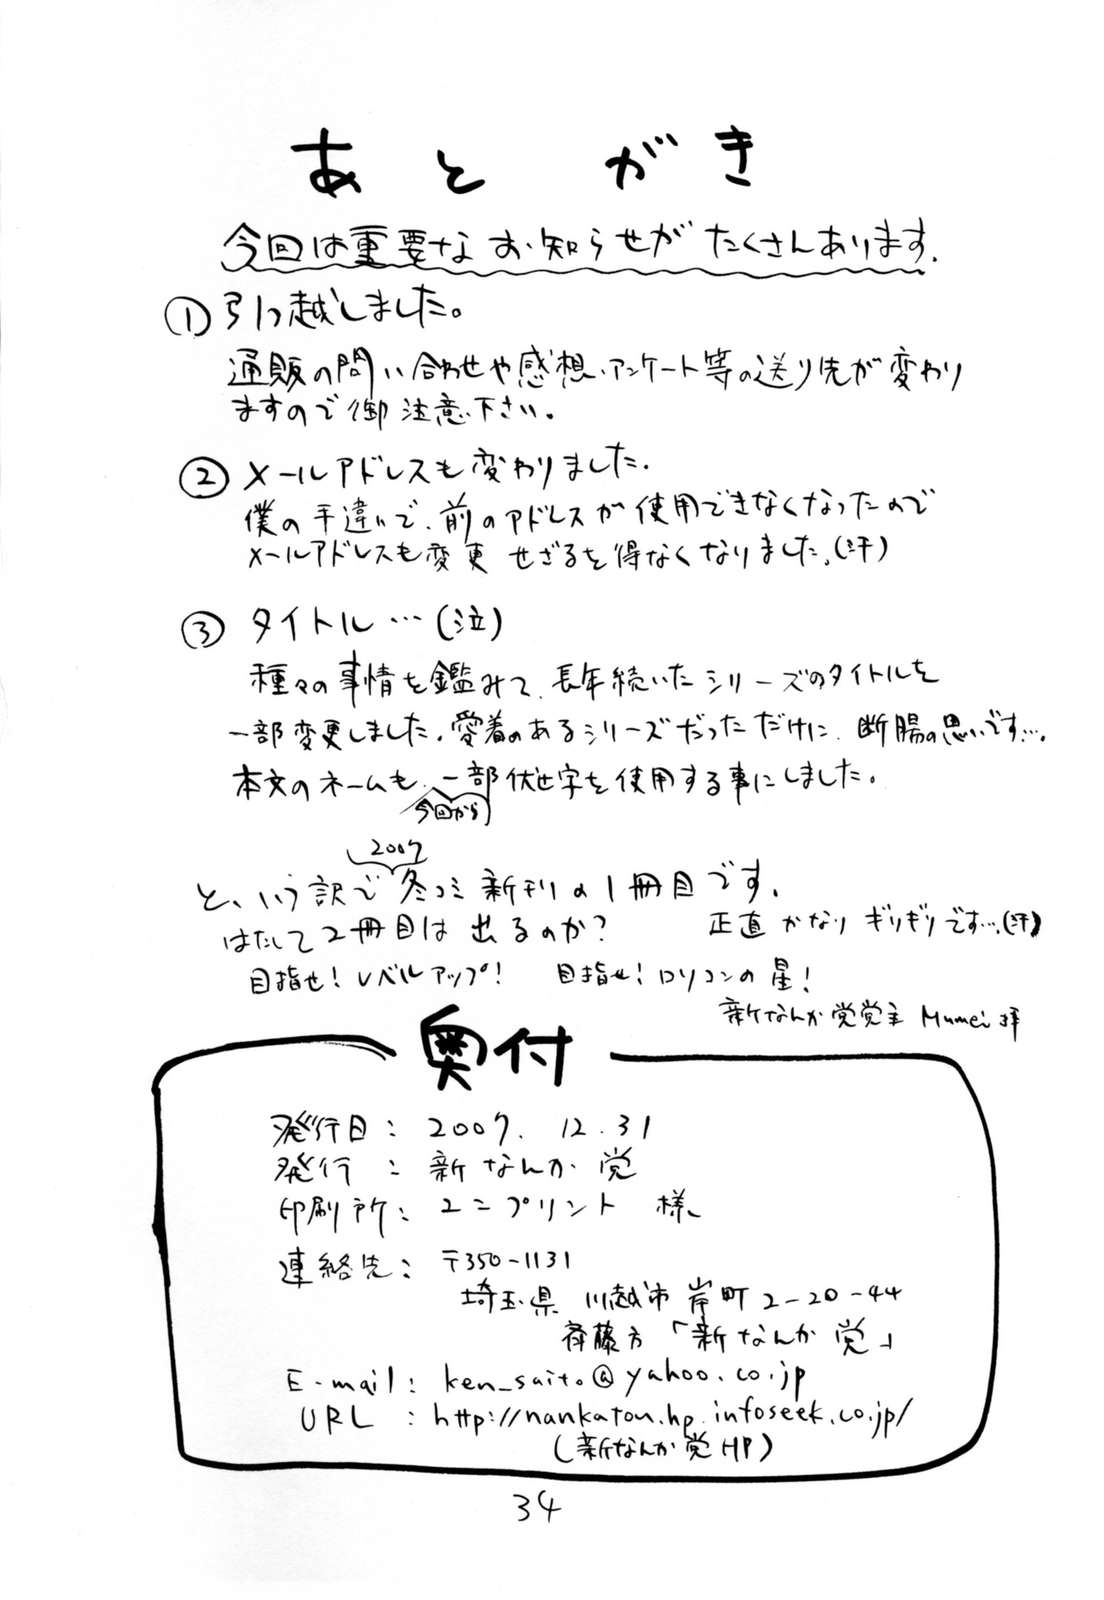 あとがき
今回は重要なお知らせがたくさんあります.
① 引っ越しました。
通販の問い合わせや感想、アンケート等の送り先が変わり
ますので御注意下さい。
② メールアドレスも変わりました.
僕の手違いで、前のアドレスが使用できなくなったので
メールアドレスも変更せざるを得なくなりました。(汗)
③ タイトル…(泣)
種々の事情を鑑みて、長年続いたシリーズのタイトルを
一部変更しました。愛着のあるシリーズだっただけに、断腸の思いです…。
本文のネームも、一部伏せ字を使用する事にしました。
今回から
2007
と、いう訳で冬コミ新刊の1冊目です。
はたして2冊目は出るのか? 正直かなりギリギリです…。(汗)
目指せ!レベルアップ! 目指せ!ロリコンの星!
新なんか党党主 Mumei 拝
奥付
発行日: 2007. 12. 31
発行 : 新なんか党
印刷所: ユニプリント 様
連絡先: 〒350-1131
埼玉県 川越市 岸町 2-20-44
斉藤方「新なんか党」
E-mail: ken_saito@yahoo.co.jp
URL : http://nankatou.hp.infoseek.co.jp/
(新なんか党HP)
34